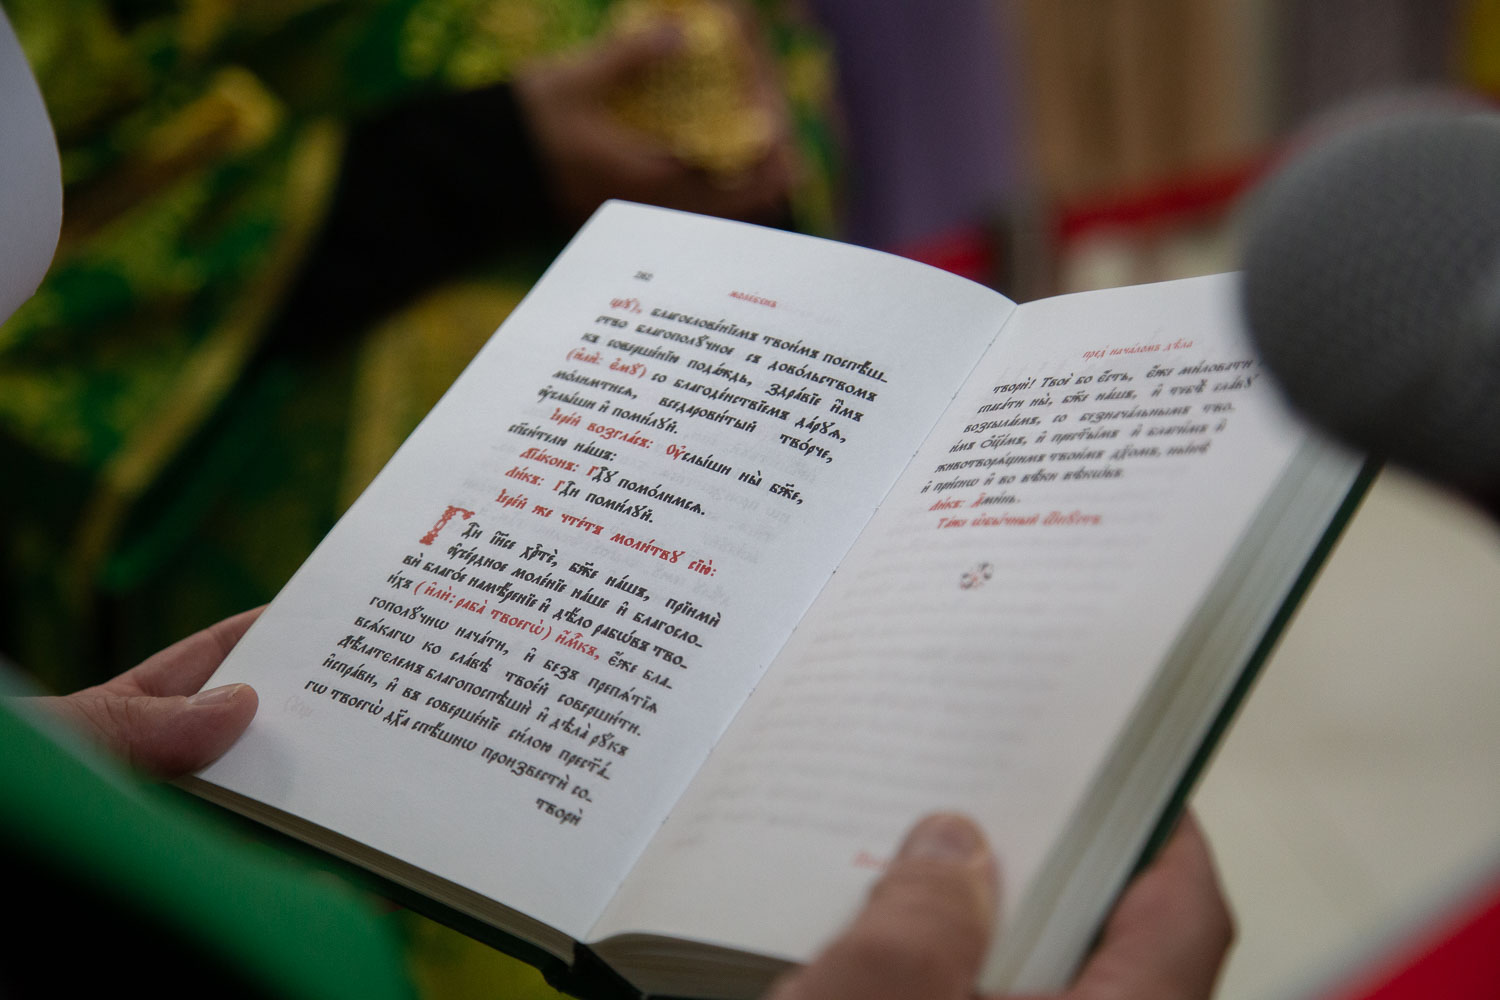 молє́бєнъ
цꙋ̀), благослове́нїемъ твои́мъ поспѣ́ш-
ство благополꙋ́чное съ дово́льствомъ
къ соверше́нїю пода́ждь, здра́вїе и҆̀мъ
(и҆лѝ: є҆мꙋ̀) со благоде́нствїемъ да́рꙋѧ,
мо́лимтисѧ, вседарови́тый тво́рче,
ᲂу҆слы́ши и҆ поми́лꙋй.
І҆ере́й возгла́съ: Оу҆слы́ши ны̀ бж҃е,
сп҃си́телю на́шъ:
Дїа́конъ: Гдⷭ҇ꙋ помо́лимсѧ.
Ли́къ: Гдⷭ҇и поми́лꙋй.
І҆ере́й же чте́тъ моли́твꙋ сїю̀:
Гдⷭ҇и і҆и҃се хрⷭ҇тѐ, бж҃е на́шъ, прїимѝ
ᲂу҆се́рдное моле́нїе на́ше и҆ благосло-
вѝ благо́е намѣ́ренїе и҆ дѣ́ло рабѡ́въ тво-
и́хъ (и҆лѝ: раба̀ твоегѡ̀) и҆́м҃къ, є҆́же бла-
гополꙋ́чнѡ нача́ти, и҆ без̾ препѧ́тїѧ
всѧ́кагѡ ко сла́вѣ твое́й соверши́ти.
Дѣ́лателемъ благопоспѣшѝ и҆ дѣла̀ рꙋ́къ
и҆спра́ви, и҆ въ соверше́нїе си́лою прест҃а́-
гѡ твоегѡ̀ дх҃а спѣ́шнѡ произвестѝ со-
творѝ
пред̾ нача́ломъ дѣ́ла
творѝ! Твоѐ бо є҆́сть, є҆́же ми́ловати
спаса́ти ны̀, бж҃е на́шъ, и҆ тебѣ̀ сла́вꙋ
возсыла́емъ, со безнача́льнымъ тво-
и́мъ ѻ҆ц҃е́мъ, и҆ прест҃ы́мъ и҆ бл҃ги́мъ и҆
животворѧ́щимъ твои́мъ дх҃омъ, ны́нѣ
и҆ при́снѡ и҆ во вѣ́ки вѣкѡ́въ.
Ли́къ: А҆ми́нь.
Та́же ѡ҆бы́чный ѿпꙋ́стъ.